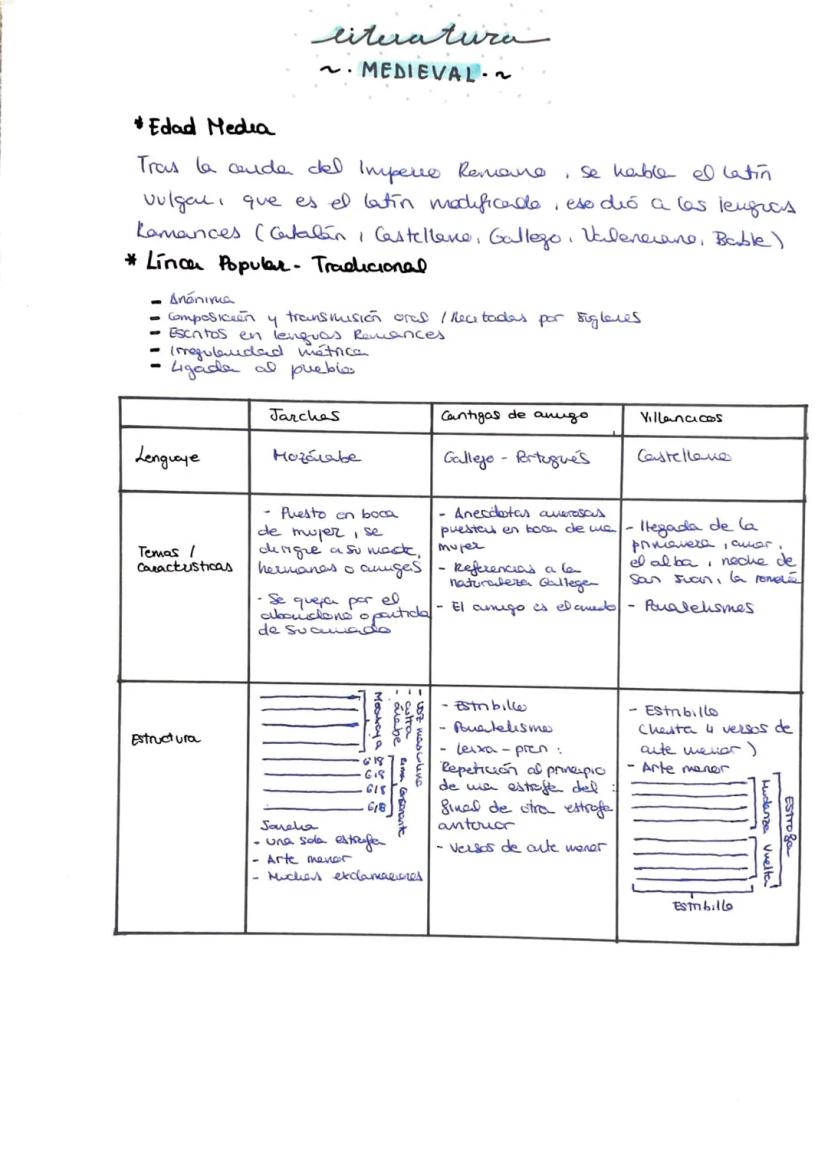 Literatura
~. MEDIEVAL. ~
* Edad Media
Tras la caída del Imperio Romano, se habla el latín
vulgar, que es el latín modificado, eso dió a las lenguas
Romances (Catalán, Castellano, Gallego, Valenciano, Bable)
* Línea Popular - Tradicional
- Anónima
- Composición y transmisión oral / Recitadas por Juglares
- Escritos en lenguas Romances
- Irregularidad métrica
- Ligada al pueblo
Jarchas
Cantigas de amigo
Villancicos
Lenguaje
Mozárabe
Gallego - Portugués
Castellano
Temas /
Características
- Puesto en boca
de mujer, se
dirigre a su madre,
hermanas o amigas
- Se queja por el
abandono o partida
de su amado
- Anécdotas amorosas
puestas en boca de una
mujer
- Referencias a la
naturaleza Gallega
- El amigo es el amado
- llegada de la
primavera, amor,
el alba, noche de
San Juan, la romería
- Paralelismos
Estructura
Moaxaja
- voz masculina
- culta
- árabe
6/8
6/8
6/8
6/8
Rima Consonante
Jarcha
- una sola estrofa
- Arte menor
- Muchas exclamaciones
- Estribillo
- Paralelismo
- Leixa - pren :
Repetición al principio
de una estrofa del :
final de otra estrofa
anterior
- Versos de arte menor
- Estribillo
(hasta 4 versos de
arte menor)
- Arte menor
Mudanza
Vuelta
Estrofa
Estribillo